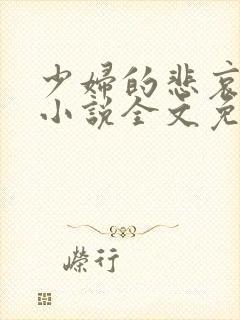 少婦的悲哀
小說全文免
嶸行